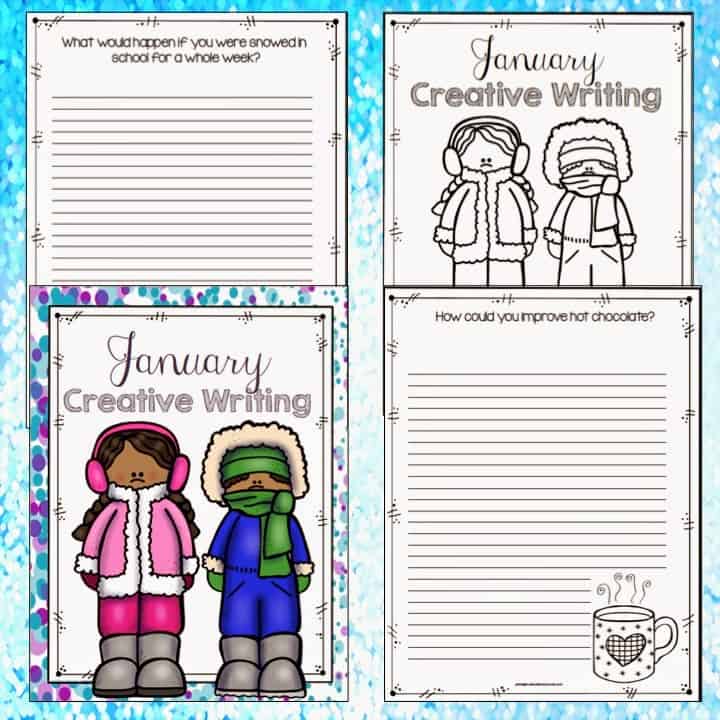 What would happen if you were snowed in
school for a whole week?
January
Creative Writing
January
Creative Writing
How could you improve hot chocolate?